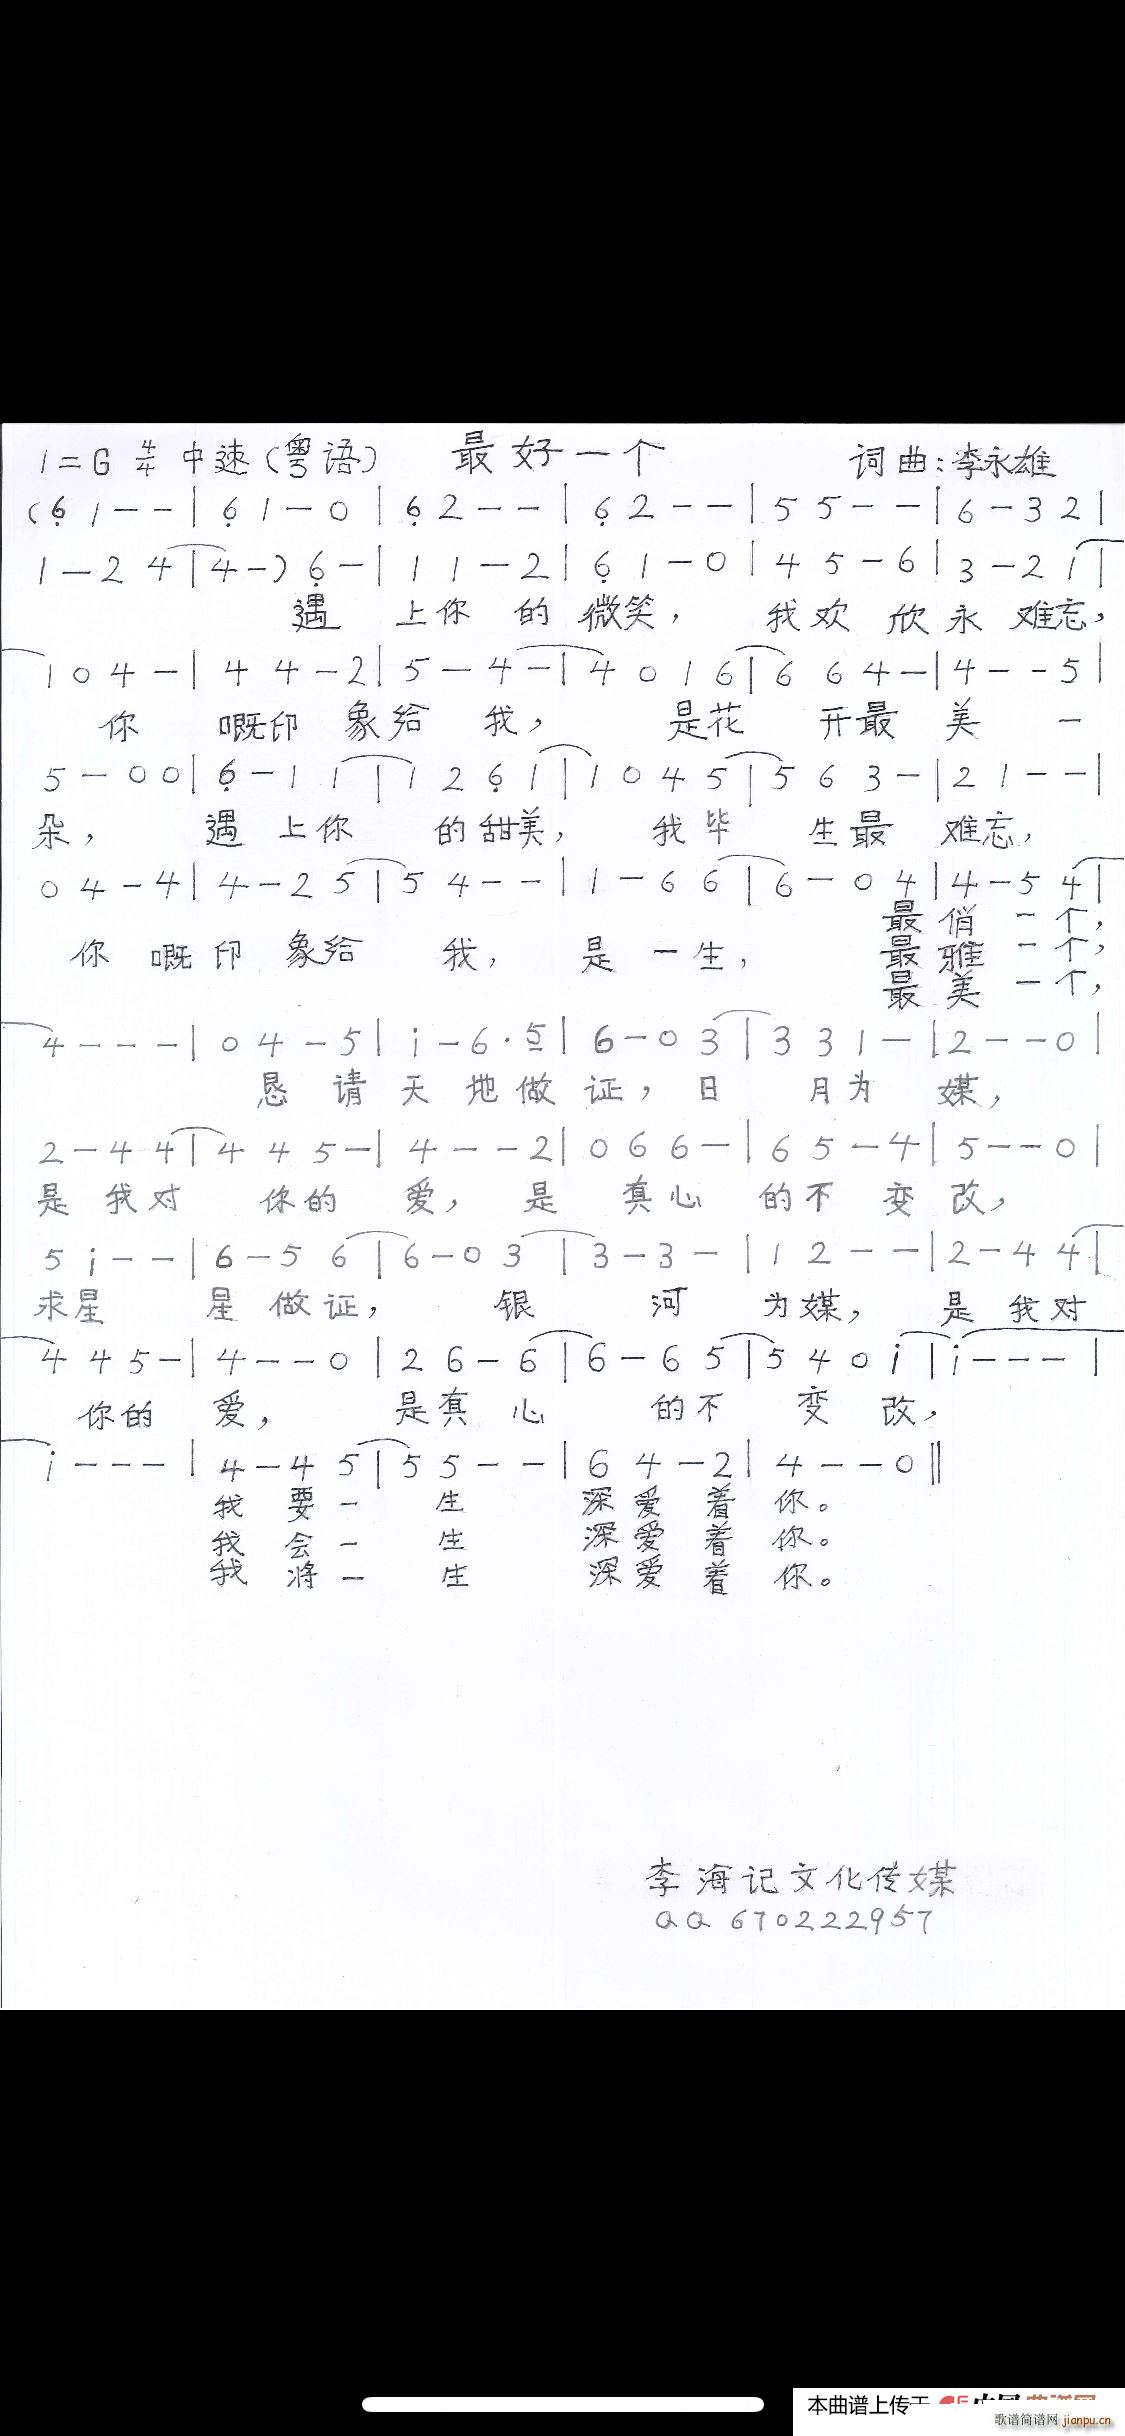 1=G 4/4 中速(粤语) 最好一个 词曲:李永雄
(6̣ 1 - - | 6̣ 1 - 0 | 6̣ 2 - - | 6̣ 2 - - | 5 5 - - | 6 - 3 2 |
1 - 2 4 | 4 - ) 6̣ - | 1 1 - 2 | 6̣ 1 - 0 | 4 5 - 6 | 3 - 2 1 |
遇 上你 的 微笑, 我欢 欣 永 难忘,
1 0 4 - | 4 4 - 2 | 5 - 4 - | 4 0 1 6 | 6 6 4 - | 4 - - 5 |
你 嘅印 象给 我, 是花 开最 美 一
5 - 0 0 | 6̣ - 1 1 | 1 2 6̣ 1 | 1 0 4 5 | 5 6 3 - | 2 1 - - |
朵, 遇 上你 的甜美, 我毕 生最 难忘,
0 4 - 4 | 4 - 2 5 | 5 4 - - | 1 - 6 6 | 6 - 0 4 | 4 - 5 4 |
最 俏 一 个,
你 嘅 印 象给 我, 是 一 生, 最 雅 一 个,
最 美 一 个,
4 - - - | 0 4 - 5 | i - 6 · 5̲ | 6 - 0 3 | 3 3 1 - | 2 - - 0 |
恳 请 天 地 做 证, 日 月为 媒,
2 - 4 4 | 4 4 5 - | 4 - - 2 | 0 6 6 - | 6 5 - 4 | 5 - - 0 |
是 我对 你的 爱, 是 真心 的不 变 改,
5 i - - | 6 - 5 6 | 6 - 0 3 | 3 - 3 - | 1 2 - - | 2 - 4 4 |
求星 星 做 证, 银 河 为媒, 是 我 对
4 4 5 - | 4 - - 0 | 2 6 - 6 | 6 - 6 5 | 5 4 0 i | i - - - |
你的 爱, 是真 心 的不 变 改,
i - - - | 4 - 4 5 | 5 5 - - | 6 4 - 2 | 4 - - 0 ‖
我 要 一 生 深 爱 着 你。
我 会 一 生 深 爱 着 你。
我 将 一 生 深 爱 着 你。
李海记文化传媒
QQ 670222957
本曲谱上传于
歌谱简谱网 jianpu.cn